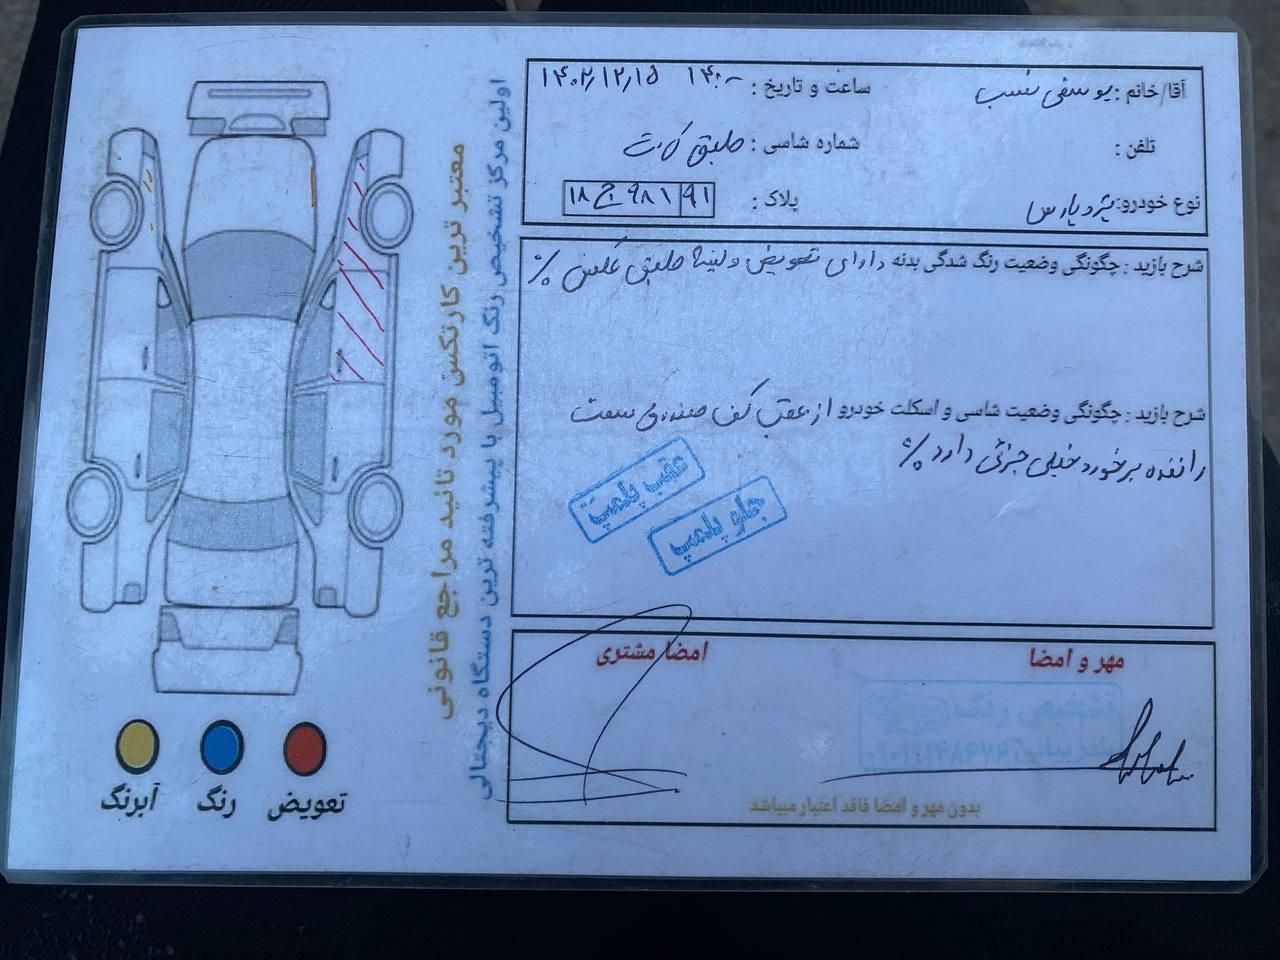 آقا/خانم : یوسفی نسب
ساعت و تاریخ : ۱۴:۰۰ ۱۴۰۲/۱۲/۱۵
تلفن :
شماره شاسی : طبق کارت
نوع خودرو: پژو پارس
پلاک : ۹۱ ۹۸۱ ج ۱۸
شرح بازید : چگونگی وضعیت رنگ شدگی بدنه دارای تعویض و لیسه طبق عکس ٪
شرح بازید : چگونگی وضعیت شاسی و اسکلت خودرو از عقب کف صندوق سمت
راننده برخورد خیلی جزئی دارد ٪
عقب پلمپ
جلو پلمپ
مهر و امضا
امضا مشتری
تشخیص رنگ
بدون مهر و امضا فاقد اعتبار میباشد
معتبر ترین کارتکس مورد تائید مراجع قانونی
اولین مرکز تشخیص رنگ اتومبیل با پیشرفته ترین دستگاه دیجتالی
تعویض
رنگ
آبرنگ